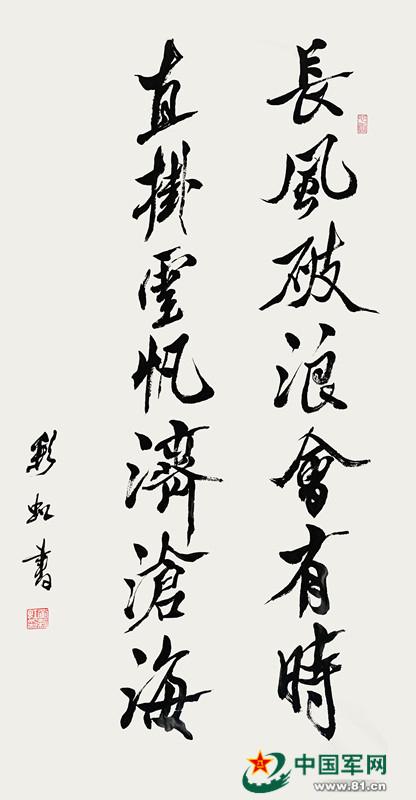 長風破浪會有時
直掛雲帆濟滄海
彩虹書
中国军网
www.81.cn